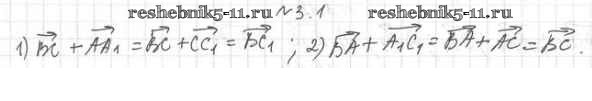 reshebnik5-11.ru №3.1 reshebnik5-11.ru
1) BC + AA₁ = BC + CC₁ = BC₁ ; 2) BA + A₁C₁ = BA + AC = BC.